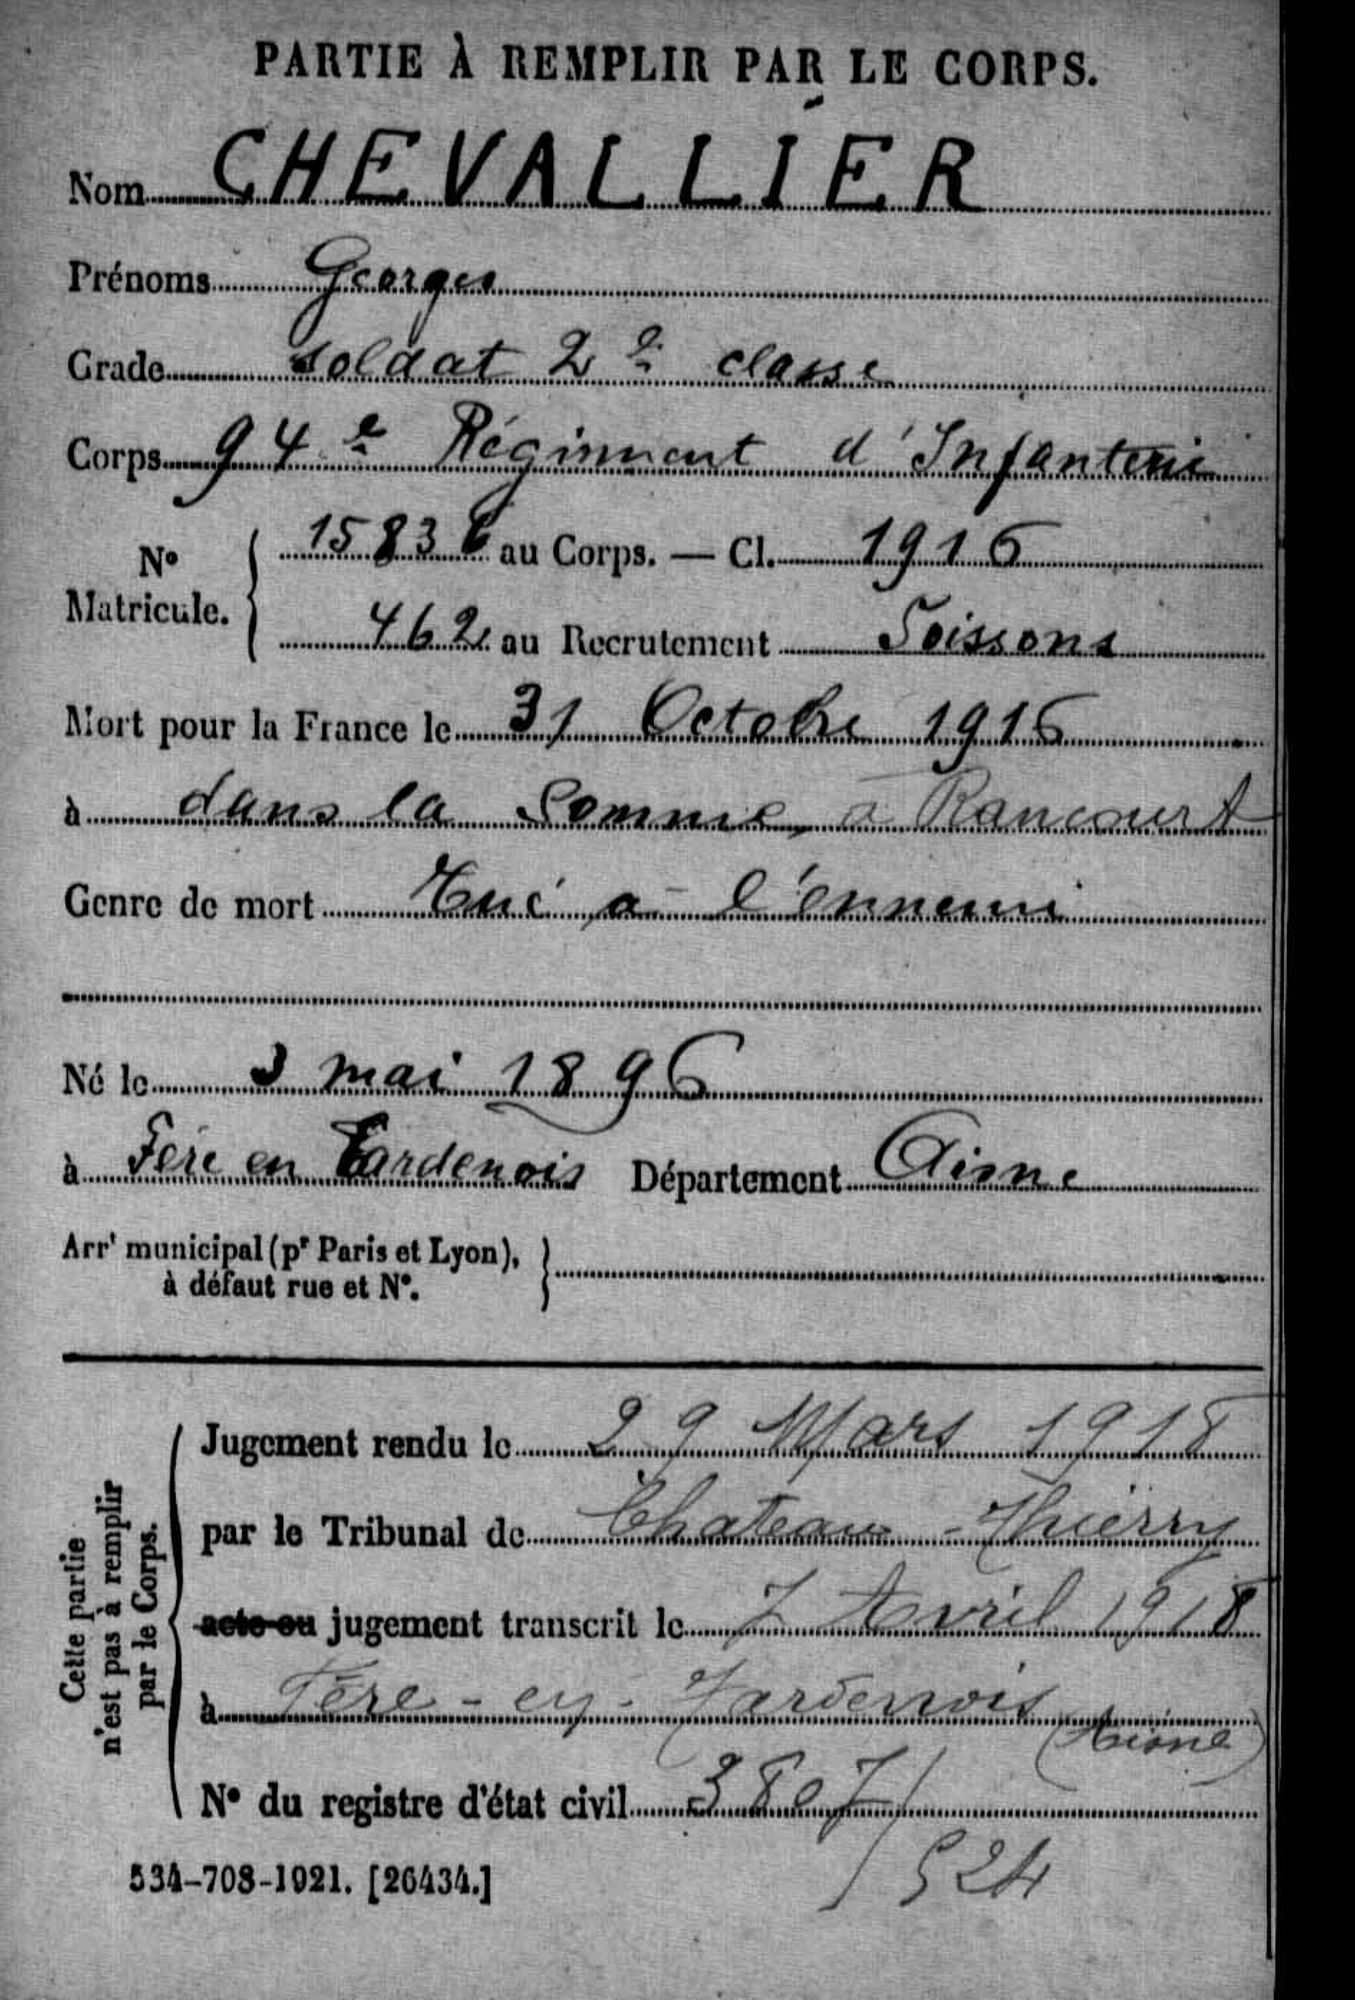 PARTIE À REMPLIR PAR LE CORPS.
Nom CHEVALLIER
Prénoms Georges
Grade soldat 2e classe
Corps 94e Régiment d'Infanterie
No Matricule. { 15836 au Corps. — Cl. 1916
462 au Recrutement Soissons
Mort pour la France le 31 Octobre 1916
à dans la Somme, à Rancourt
Genre de mort Tué à l'ennemi
Né le 3 mai 1896
à Fère en Tardenois Département Aisne
Arrt municipal (pr Paris et Lyon),
à défaut rue et No.
Cette partie
n'est pas à remplir
par le Corps.
Jugement rendu le 29 Mars 1918
par le Tribunal de Chateau-Thierry
acte ou jugement transcrit le 7 Avril 1918
à Fère-en-Tardenois (Aisne)
No du registre d'état civil 3807/
/524
534-708-1921. [26434.]